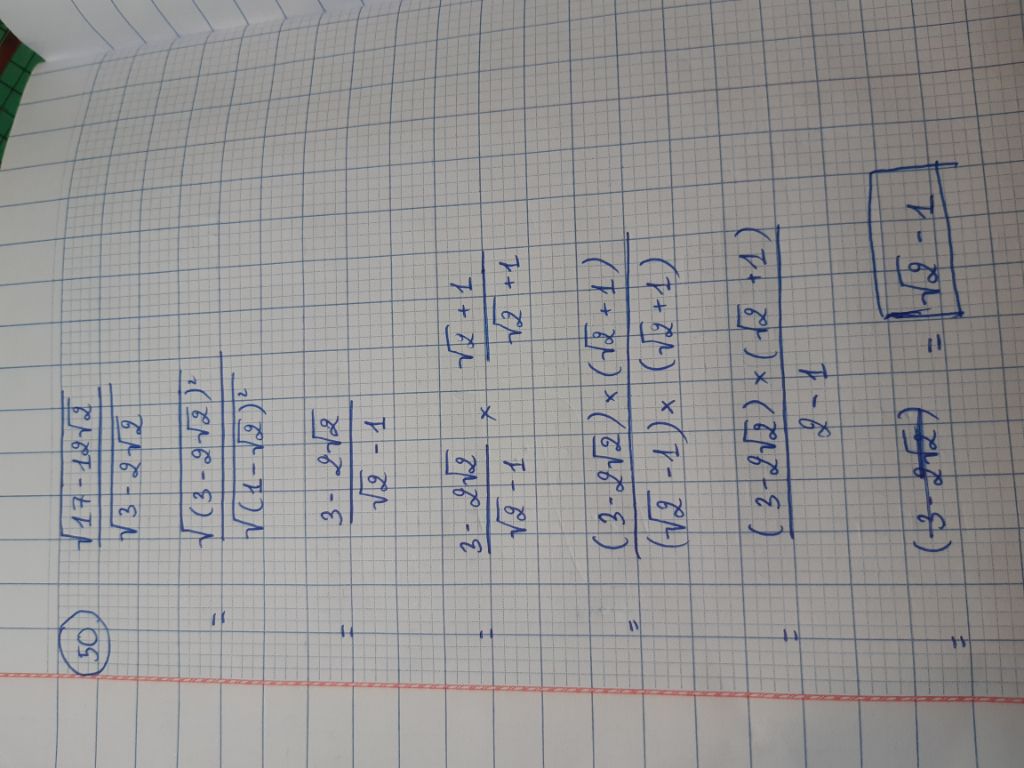 50
√(17-12√2) / √(3-2√2)
= √((3-2√2)²) / √((1-√2)²)
= (3-2√2) / (√2-1)
= (3-2√2) / (√2-1) × (√2+1) / (√2+1)
= (3-2√2)×(√2+1) / (√2-1)×(√2+1)
= (3-2√2)×(√2+1) / 2-1
= (3-2√2) = √2-1